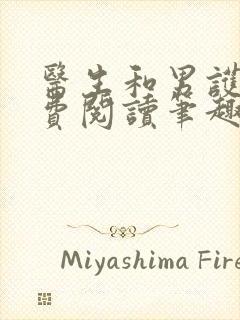 醫生和男護
費閱讀筆趣
Miyashima Fire